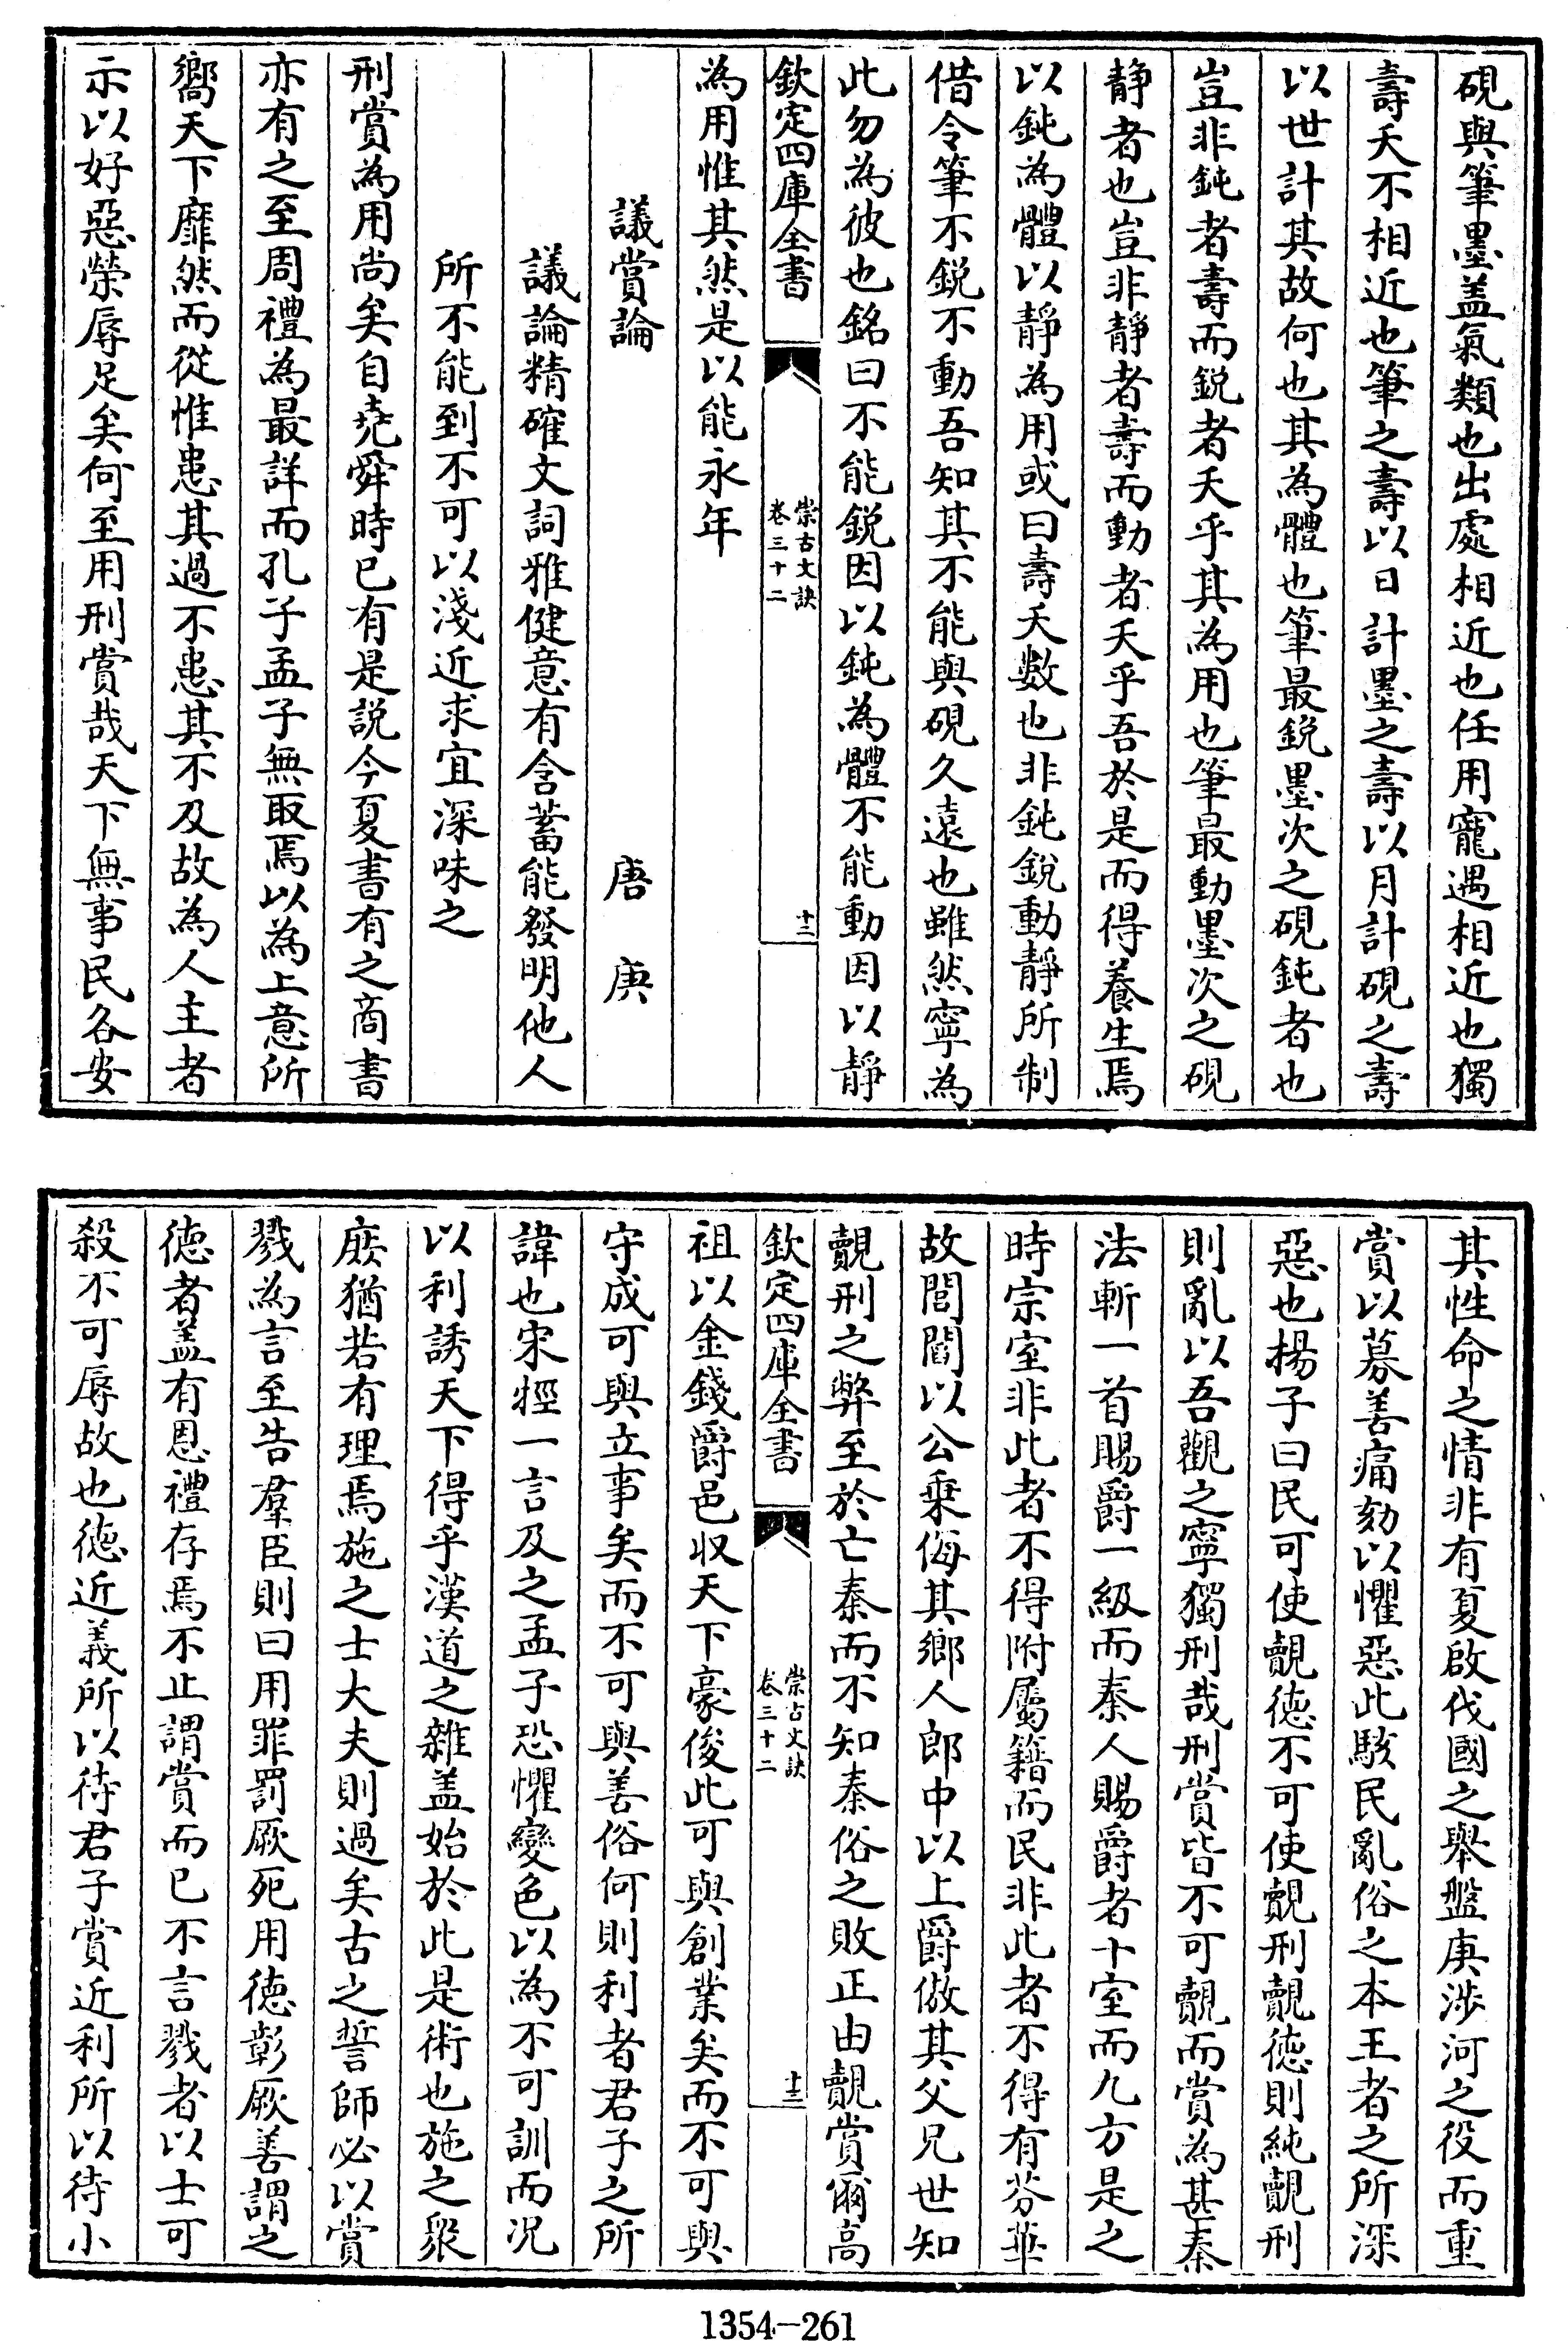 硯與筆墨盖氣類也出處相近也任用寵遇相近也獨
壽夭不相近也筆之壽以日計墨之壽以月計硯之壽
以世計其故何也其為體也筆最銳墨次之硯鈍者也
豈非鈍者壽而銳者夭乎其為用也筆最動墨次之硯
靜者也豈非靜者壽而動者夭乎吾於是而得養生焉
以鈍為體以靜為用或曰壽夭數也非鈍銳動靜所制
借令筆不銳不動吾知其不能與硯久遠也雖然寧為
此勿為彼也銘曰不能銳因以鈍為體不能動因以靜
欽定四庫全書
崇古文訣
卷三十二
十二
為用惟其然是以能永年
議賞論
唐庚
議論精確文詞雅健意有含蓄能發明他人
所不能到不可以淺近求宜深味之
刑賞為用尚矣自堯舜時已有是説今夏書有之商書
亦有之至周禮為最詳而孔子孟子無取焉以為上意所
嚮天下靡然而從惟患其過不患其不及故為人主者
示以好惡榮辱足矣何至用刑賞哉天下無事民各安
其性命之情非有夏啟伐國之舉盤庚涉河之役而重
賞以募善痛劾以懼惡此駭民亂俗之本王者之所深
惡也楊子曰民可使覿德不可使覿刑覿德則純覿刑
則亂以吾觀之寧獨刑哉刑賞皆不可覿而賞為甚秦
法斬一首賜爵一級而秦人賜爵者十室而九方是之
時宗室非此者不得附屬籍而民非此者不得有芬華
故閭閻以公乗侮其鄉人郎中以上爵傲其父兄世知
覿刑之弊至於亡秦而不知秦俗之敗正由覿賞爾高
欽定四庫全書
崇古文訣
卷三十二
十三
祖以金錢爵邑収天下豪俊此可與創業矣而不可與
守成可與立事矣而不可與善俗何則利者君子之所
諱也宋牼一言及之孟子恐懼變色以為不可訓而況
以利誘天下得乎漢道之雜盖始於此是術也施之衆
庶猶若有理焉施之士大夫則過矣古之誓師必以賞
戮為言至告羣臣則曰用罪罰厥死用徳彰厥善謂之
徳者盖有恩禮存焉不止謂賞而已不言戮者以士可
殺不可辱故也徳近義所以待君子賞近利所以待小
1354-261